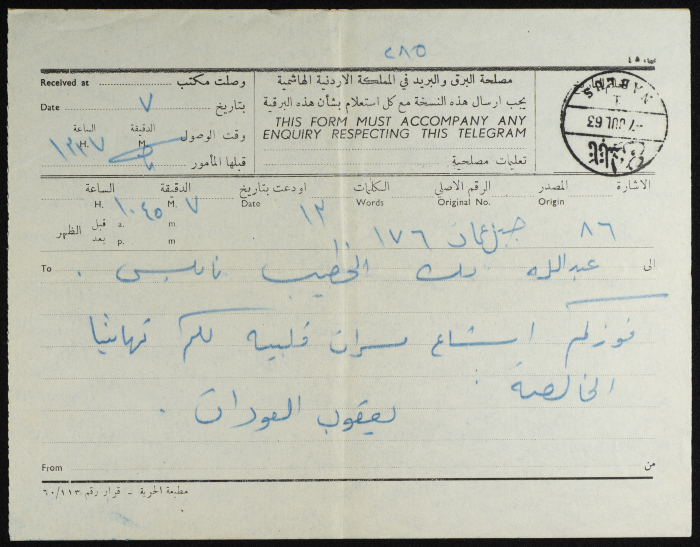 ٢٨٥
Received at
وصلت مكتب
مصلحة البرق والبريد في المملكة الاردنية الهاشمية
Date ٧ بتاريخ
يجب ارسال هذه النسخة مع كل استعلام بشأن هذه البرقية
THIS FORM MUST ACCOMPANY ANY
ENQUIRY RESPECTING THIS TELEGRAM
NABLUS
-7 JUL 63
نابلس
الساعة الدقيقة وقت الوصول
H. M.
١٣٣٧
قبلها المأمور
تعليمات مصلحية
الاشارة المصدر الرقم الاصلي الكلمات اودعت بتاريخ الدقيقة الساعة
Origin Original No. Words Date M. H.
٨٦ جبل عمان ١٧٦ ١٣ ٧ ١٠٤٥
قبل a. m
بعد p. m
الظهر
To الى عبدالله بك الخطيب نابلس .
فوزكم اشاع مسرات قلبيه لكم تهانينا
الخالصة .
يعقوب العودات .
From من
مطبعة الحرية - قرار رقم ٦٠/١١٣